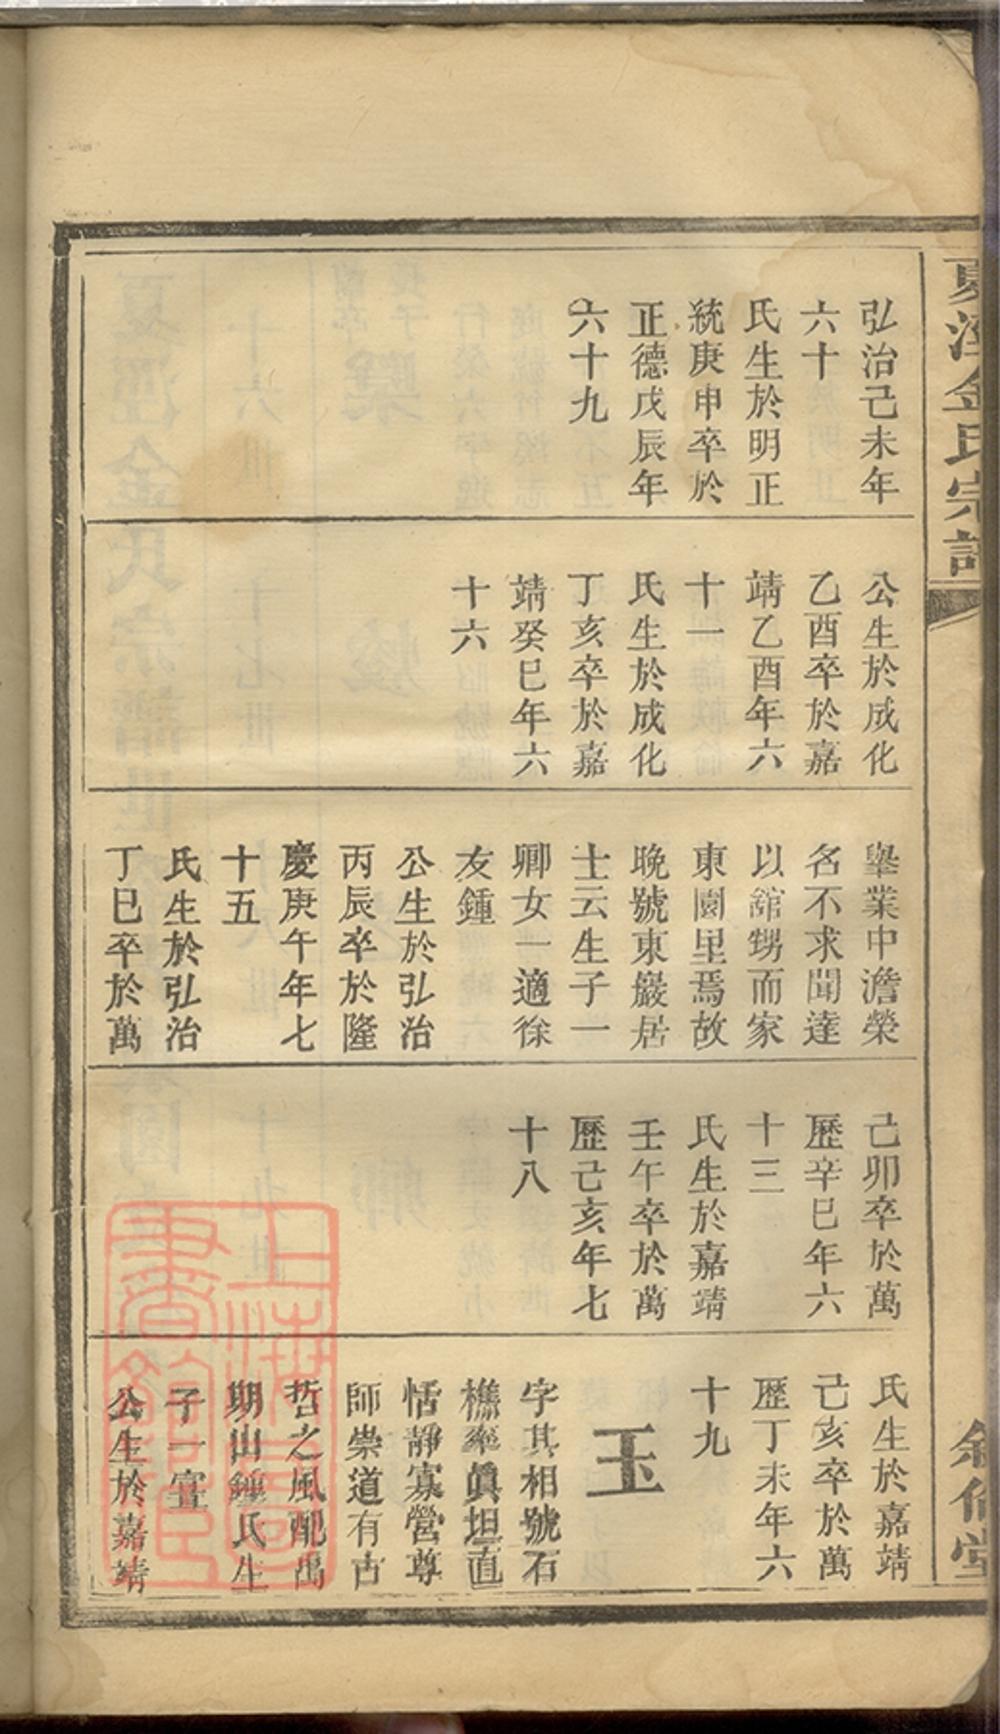 夏涇金氏宗譜
弘治己未年
六十
氏生於明正
統庚申卒於
正德戊辰年
六十九
公生於成化
乙酉卒於嘉
靖乙酉年六
十一
氏生於成化
丁亥卒於嘉
靖癸巳年六
十六
舉業中澹榮
名不求聞達
以舘甥而家
東園里焉故
晚號東巖居
士云生子一
卿女一適徐
友鍾
公生於弘治
丙辰卒於隆
慶庚午年七
十五
氏生於弘治
丁巳卒於萬
己卯卒於萬
歷辛巳年六
十三
氏生於嘉靖
壬午卒於萬
歷己亥年七
十八
氏生於嘉靖
己亥卒於萬
歷丁未年六
十九
玉
字其相號石
樵率眞坦直
恬靜寡營尊
師崇道有古
哲之風配禺
期山鍾氏生
子一
公生於嘉靖
上海圖書館藏